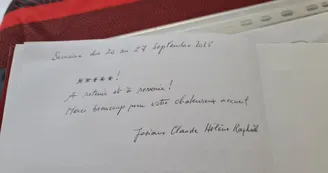 Semaine du 20 au 27 Septembre 2025
*****!
A retenir et à revenir !
Merci beaucoup pour votre chaleureux accueil
Josiane Claude Hélène Raphaël